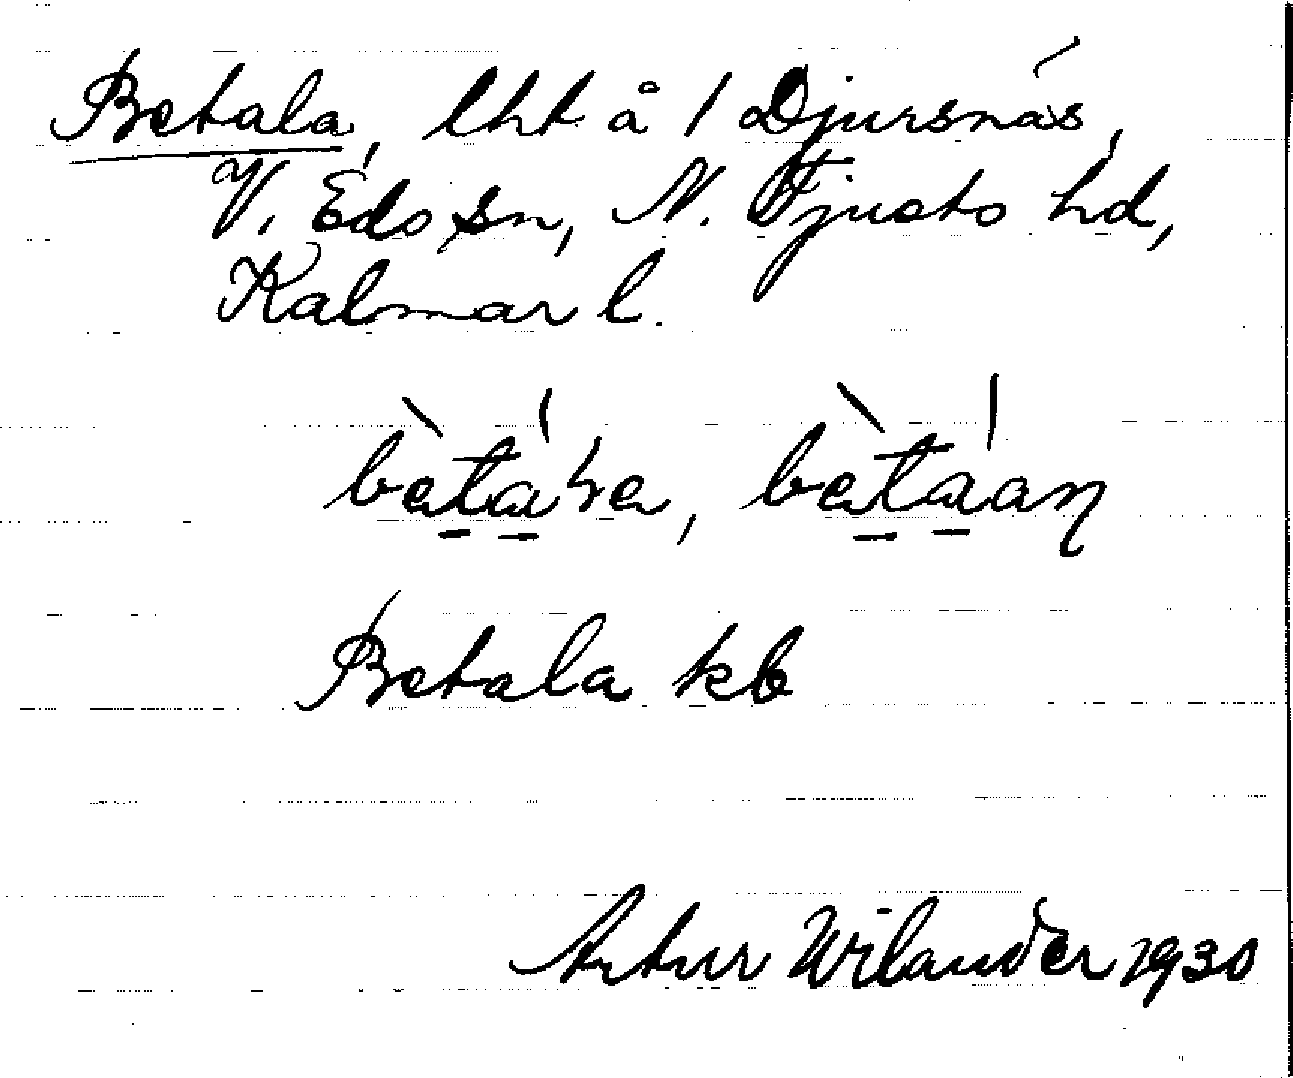 Betala, lht å 1 Djursnäs,
V. Eds sn, N. Tjusts hd,
Kalmar l.
Betala kb
Artur Wilander 1930